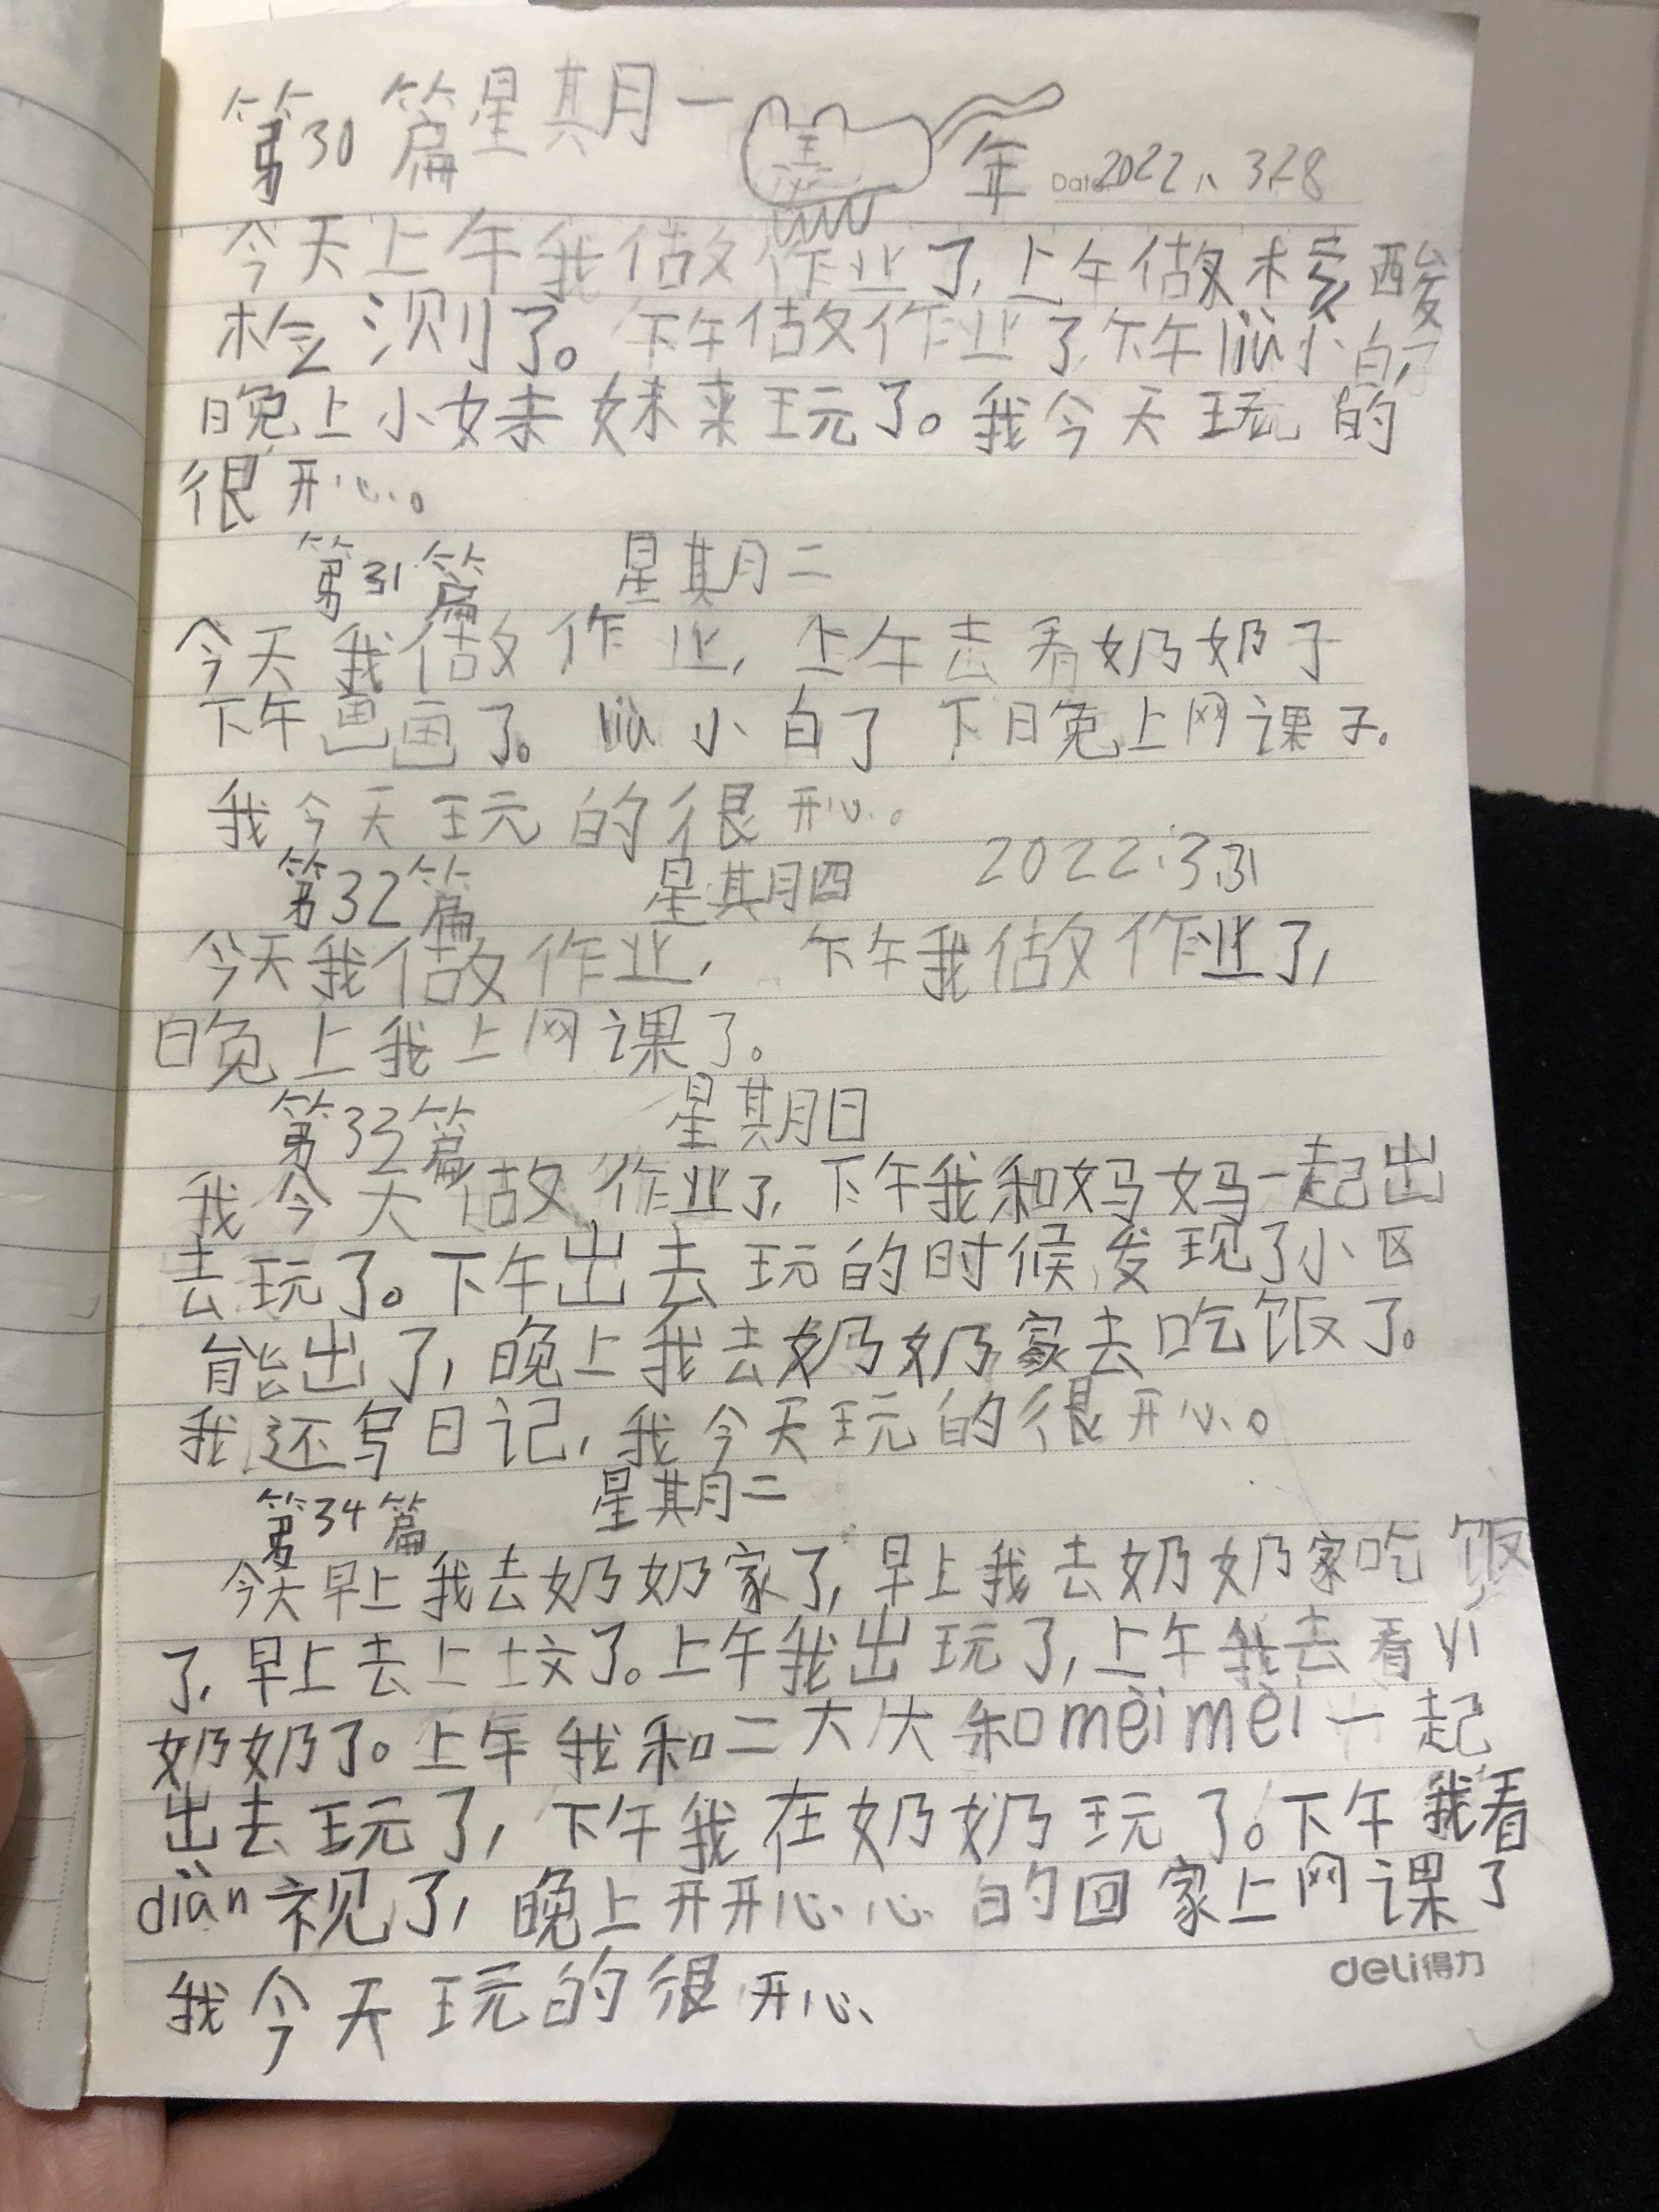 第30篇星期一 年 Date 2022. 3.28
今天上午我做作业了,上午做核酸
检测了。下午做作业了,下午liù小白了,
晚上小妹妹来玩了。我今天玩的
很开心。
第31篇 星期二
今天我做作业,上午去看奶奶了
下午画画了。liù小白了 下晚上网课了。
我今天玩的很开心。
第32篇 星期四 2022.3.31
今天我做作业, 下午我做作业了,
晚上我上网课了。
第33篇 星期日
我今天做作业了,下午我和妈妈一起出
去玩了。下午出去玩的时候发现了小区
能出了,晚上我去奶奶家去吃饭了。
我还写日记,我今天玩的很开心。
第34篇 星期二
今天早上我去奶奶家了,早上我去奶奶家吃饭
了,早上去上坟了。上午我出玩了,上午我去看yi
奶奶了。上午我和二大大和mèimèi一起
出去玩了,下午我在奶奶玩了。下午我看
diàn视了,晚上开开心心的回家上网课了
我今天玩的很开心、
deli得力